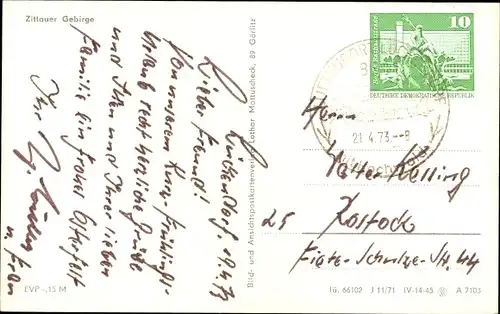 Zittauer Gebirge
Lückendorf. 19.4.73
Lieber Freund!
Von unserem Kurz-Frühlings-
Urlaub recht herzliche Grüße
und Ihnen und Ihrer lieben
Familie ein frohes Osterfest
Ihr
u. Frau
EVP -,15 M
Bild- und Ansichtspostkartenverlag Lothar Mattuscheck, 89 Görlitz
10
DEUTSCHE DEMOKRATISCHE REPUBLIK
21.4.73.--8
Herrn
Walter Kelling
25 Rostock
Fiete-Schulze-Str. 44
Lü. 66102 J 11/71 IV-14-45 A 7103